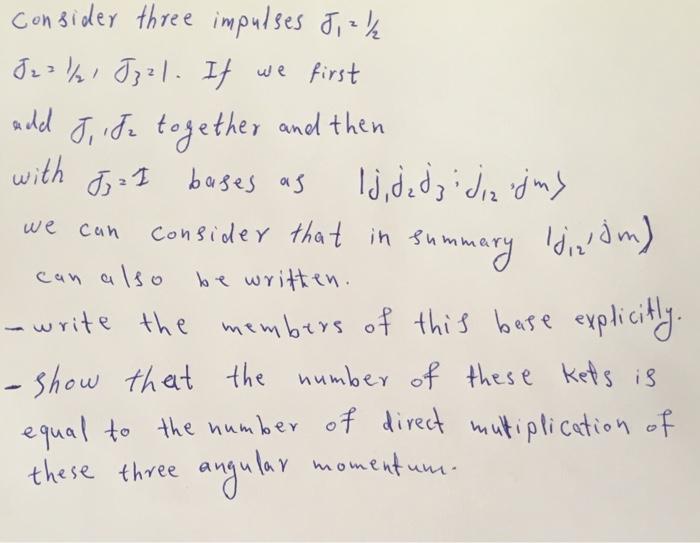 Consider three impulses J₁=½
J₂=½, J₃=1. If we first
add J₁,J₂ together and then
with J₃=1 bases as |j₁j₂j₃;j₁₂,jm>
we can consider that in summary |j₁₂,jm)
can also be written.
- write the members of this base explicitly.
- show that the number of these kets is
equal to the number of direct mutiplication of
these three angular momentum.